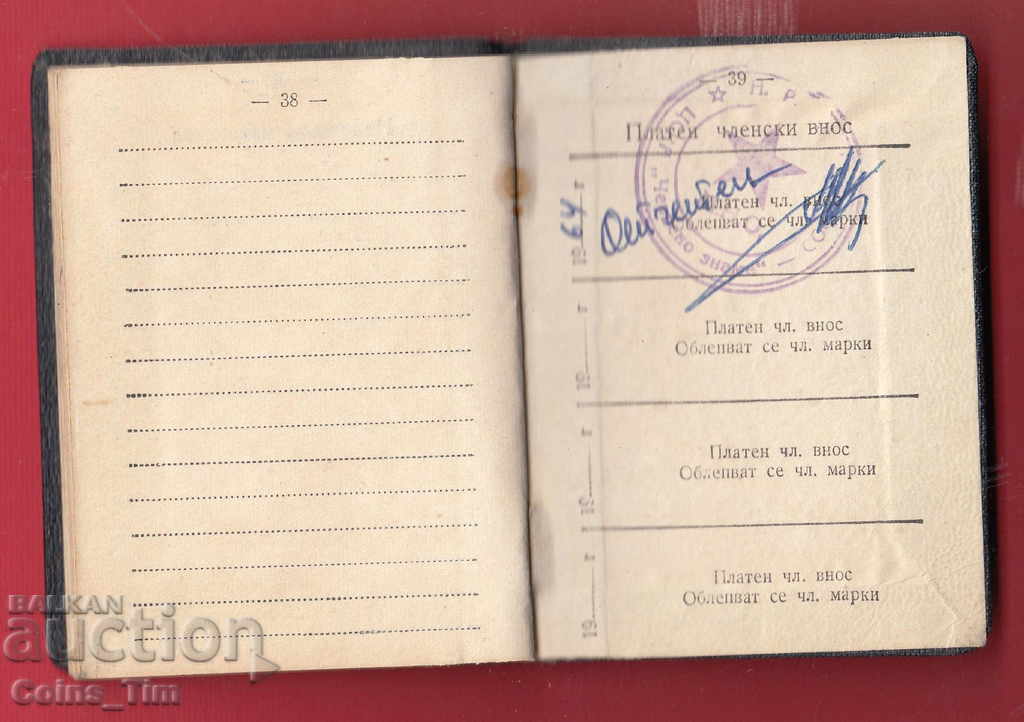 — 38 —
— 39 —
Платен членски внос
1964 г
Платен чл. внос
Облепват се чл. марки
19 г
Платен чл. внос
Облепват се чл. марки
19 г
Платен чл. внос
Облепват се чл. марки
19 г
Платен чл. внос
Облепват се чл. марки
BALKAN
auction
Coins_Tim